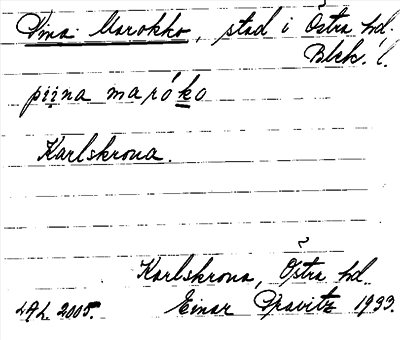 Pina Marokko, stad i Östra hd.
Blek. l.
pi̱i̱na maróḵo
Karlskrona.
Karlskrona, Östra hd.
LAL 2005. Einar Opavitz 1933.